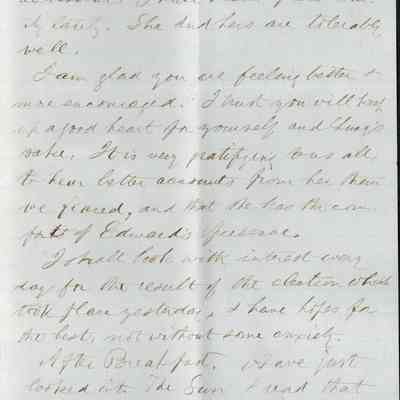 My lady. She and hers are tolerably
well.
I am glad you are feeling better &
more encouraged. I trust you will keep
up a good heart for yourself and
sake. It is very gratifying to us all
to hear better accounts from her than
we feared, and that she has the com-
fort of Edward's presence.
I shall look with interest every
day for the result of the election which
took place yesterday, & have hopes for
the best, not without some anxiety.
After Breakfast. Have just
looked into The Sun & read that